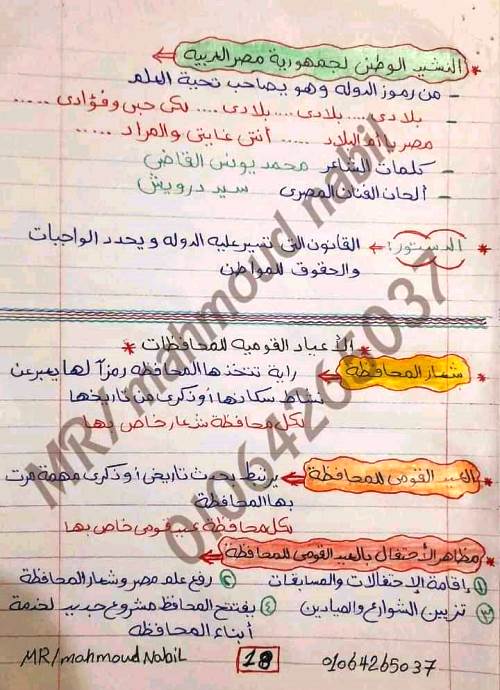 * النشيد الوطنى لجمهورية مصر العربية
- من رموز الدوله وهو يصاحب تحية العلم
بلادى .... بلادى .... بلادى .... لكى حبى وفؤادى .....
مصر يا أم البلاد ...... أنتى غايتى والمراد .....
- كلمات الشاعر محمد يونس القاضى
- ألحان الفنان المصرى سيد درويش
* الدستور: القانون التى تسير عليه الدوله ويحدد الواجبات
والحقوق للمواطن
* الأعياد القوميه للمحافظات *
* شعار المحافظة راية تتخذها المحافظه رمزآ لها يعبر عن
نشاط سكانها أو ذكرى من تاريخها
لكل محافظة شعار خاص بها
* العيد القومى للمحافظة يرتبط بحدث تاريخى أو ذكرى مهمة مرت
بها المحافظة
لكل محافظة عيد قومى خاص بها
* مظاهر الأحتفال بالعيد القومى للمحافظة
١ إقامة الإحتفالات والمسابقات ٢ رفع علم مصر وشعار المحافظة
٣ تزيين الشوارع والميادين ٤ يفتتح المحافظ مشروع جديد لخدمة
أبناء المحافظه
MR/mahmoud Nabil 18 01064265037
MR/mahmoud nabil
01064265037